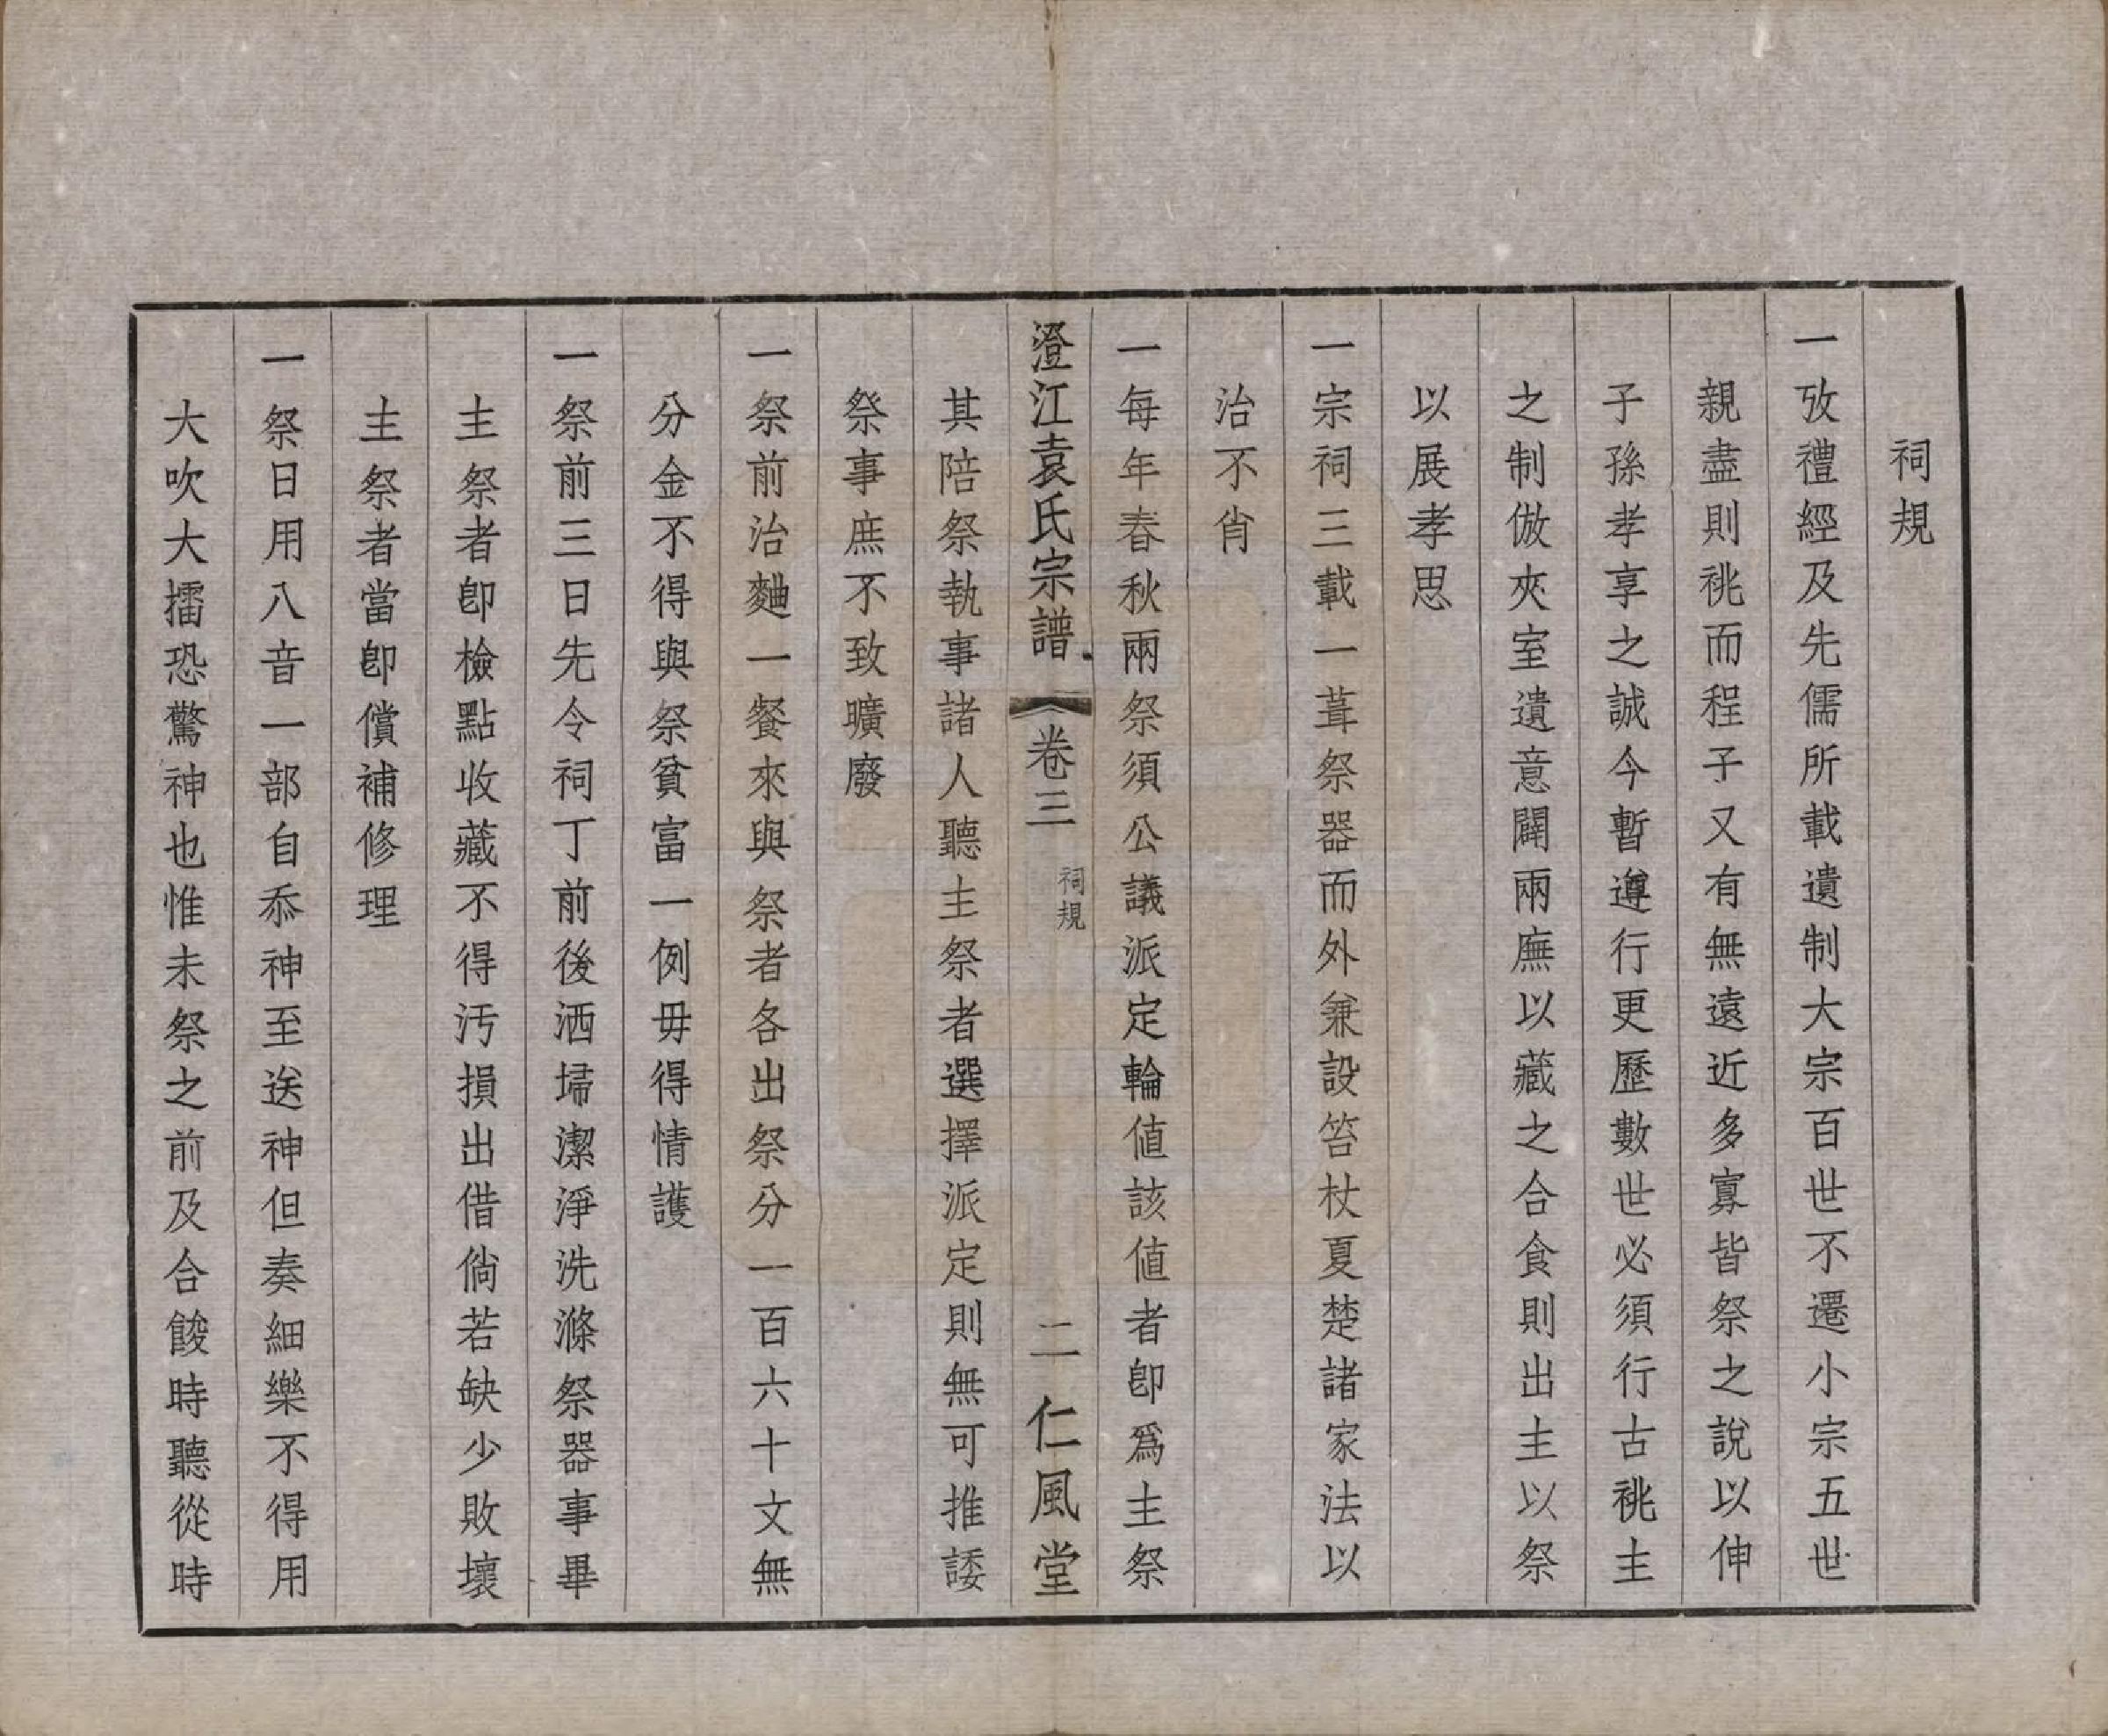 祠規
一攷禮經及先儒所載遺制大宗百世不遷小宗五世
親盡則祧而程子又有無遠近多寡皆祭之說以伸
子孫孝享之誠今暫遵行更歷數世必須行古祧主
之制倣夾室遺意闢兩廡以藏之合食則出主以祭
以展孝思
一宗祠三載一葺祭器而外兼設笞杖夏楚諸家法以
治不肖
一每年春秋兩祭須公議派定輪値該値者卽爲主祭
澄江袁氏宗譜 卷三 祠規 二 仁風堂
其陪祭執事諸人聽主祭者選擇派定則無可推諉
祭事庶不致曠廢
一祭前治麯一餐來與祭者各出祭分一百六十文無
分金不得與祭貧富一例毋得情護
一祭前三日先令祠丁前後洒埽潔淨洗滌祭器事畢
主祭者卽檢點收藏不得汚損出借倘若缺少敗壞
主祭者當卽償補修理
一祭日用八音一部自忝神至送神但奏細樂不得用
大吹大擂恐驚神也惟未祭之前及合餕時聽從時